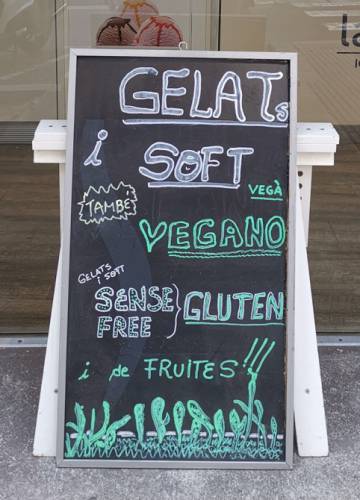 GELATs
i SOFT
TAMBÉ
VEGÀ
VEGANO
GELATS
i SOFT
SENSE
FREE
GLUTEN
i de FRUITES!!
la